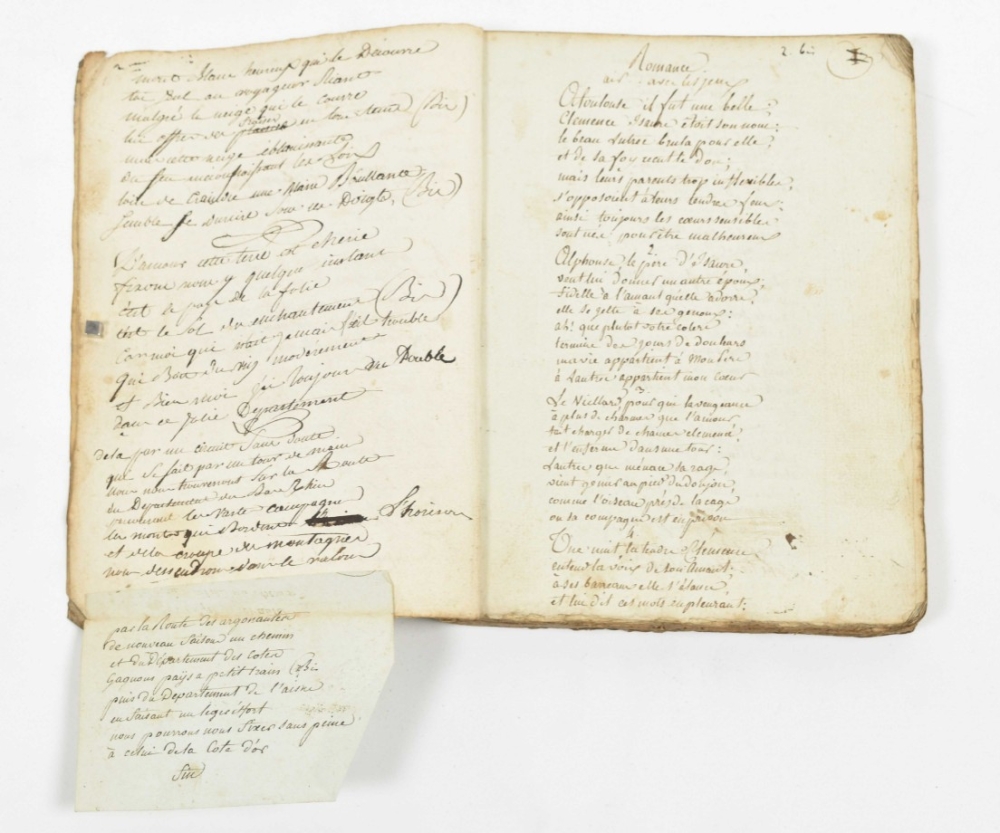 mont Blanc heureux qui le Découvre
toi seul au voyageur
malgré la neige qui le couvre
lui offres en tout tems (Bis)
cette neige eblouissante
un feu
loin de craindre une Main Brullante
semble se durcire sous les Doigts, (Bis)
L'amour cette terre est cherie
fixons nous y quelque instans
c'est le pays de la folie
c'est le sol des enchantement (Bis)
Car moi qui n'etait jamais fait trouble
Qui Bois du vin moderement
et Bien moi j'ai toujour du Double
dans ce Jolie Département
dela par un circuit sans doute
qui se fait par un tour de main
nous nous trouverons sur la Route
du Departement du Bas Rhin
parcourant la vaste campagne
les monts qui Bordent l'horison
et de la croupe des montagnes
nous dessendrons dans le valon
par la Route des argonautes
de nouveau faisons un chemin
et du Département des Cotes
Gagnons pays a petit trains (Bis
puis du Departement de l'aisne
en faisant un leger effort
nous pourrons nous fixer sans peine
à celui de la Cote d'or
fin
2. bis
1
Romance
air. avec les jeux
A toulouse il fut une belle;
Clemence Isaure étoit son nom;
le beau Lautrec brula pour elle;
et de sa foy reçut le don;
mais leurs parents trop inflexibles,
s'opposoient à leurs tendres feux
ainsi toujours les cœurs sensibles
sont nés pour être malheureux
2
Alphonse le père d'Isaure,
veut lui donner un autre époux;
fidelle à l'amant quelle adorre,
elle se jette à ses genoux:
ah! que plutot votre colere
termine des jours de douleurs
ma vie appartient à mon pere
à Lautrec appartient mon cœur
3
Le vieillard, pour qui la vengeance
a plus de charmes que l'amour
fait charger de chaines clemence
et l'enferme dans une tour:
Lautrec que menace sa rage,
vient gemir au pied du donjon
comme l'oiseau près de la cage
ou sa compagne est en prison
4
Une nuit la tendre Clemence
entend la voix de son amant:
à ses barreaux elle s'élance,
et lui dit ces mots en pleurant: